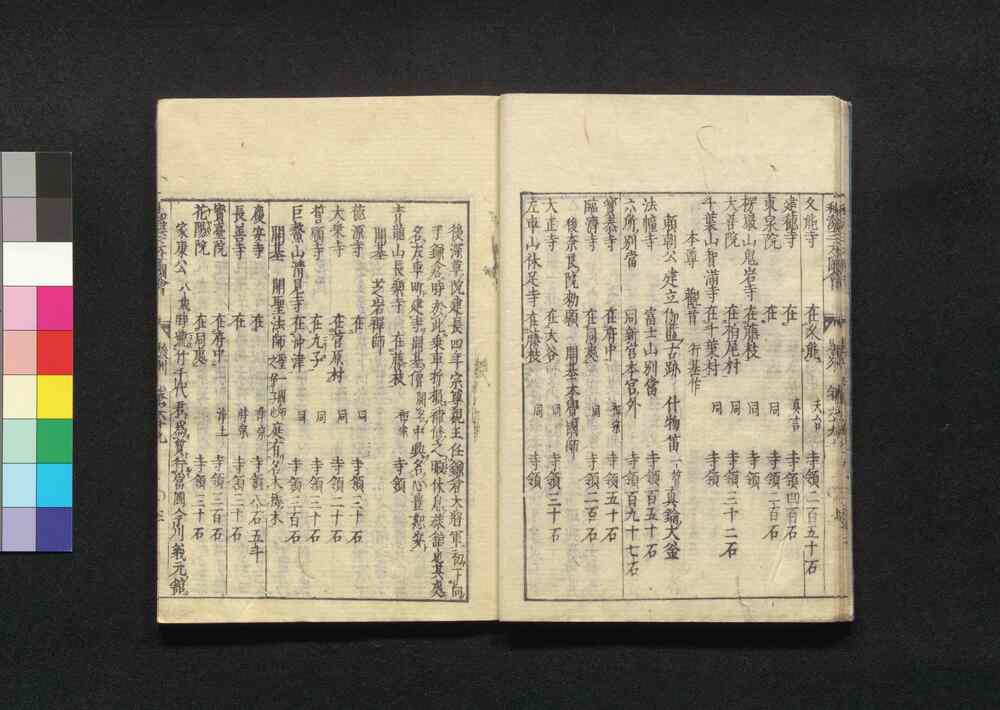 久能寺 在久能 天台 寺領二百五十石
建穂寺 在 真言 寺領四百石
東泉院 在 同 寺領二百石
楞嚴山鬼岩寺 在藤枝 同 寺領
大善院 在柏尾村 同 寺領三十二石
千葉山智滿寺 在千葉村 同 寺領
本尊 觀音 行基作
頼朝公建立伽藍古跡 什物笛一管真鍮大釜
法幢寺 富士山別當 寺領百五十石
六所別當 同新宮本宮外 寺領百九十七石
寳泰寺 在府中 寺領五十石
臨濟寺 在同處 同 寺領二百石
後奈良院勅願 開基本魯國師
大正寺 在大谷 同 寺領三十石
左車山休足寺 在藤枝 同 寺領
後深草院建長四年宗尊親王任鎌倉大將軍初下向
于鎌倉時於此乗車折損補修之暇休息旅館其處
名左車町建寺開基僧
青龍山長樂寺 在藤枝 寺領
開基 芝岩禪師
龍源寺 在 同 寺領三十石
大巖寺 在菅原村 同 寺領二十石
誓願寺 在丸子 同 寺領三十石
巨鼇山清見寺 在沖津 同 寺領二百石
開基 開聖法師聖一國師之弟子也庭有名木臥木
慶安寺 在 寺領八石五斗
長善寺 在 寺領二十石
寳臺院 在府中 淨土 寺領三百石
花陽院 在同處 寺領三十石
家康公八歳時號竹千代君爲質于當國今川義元館